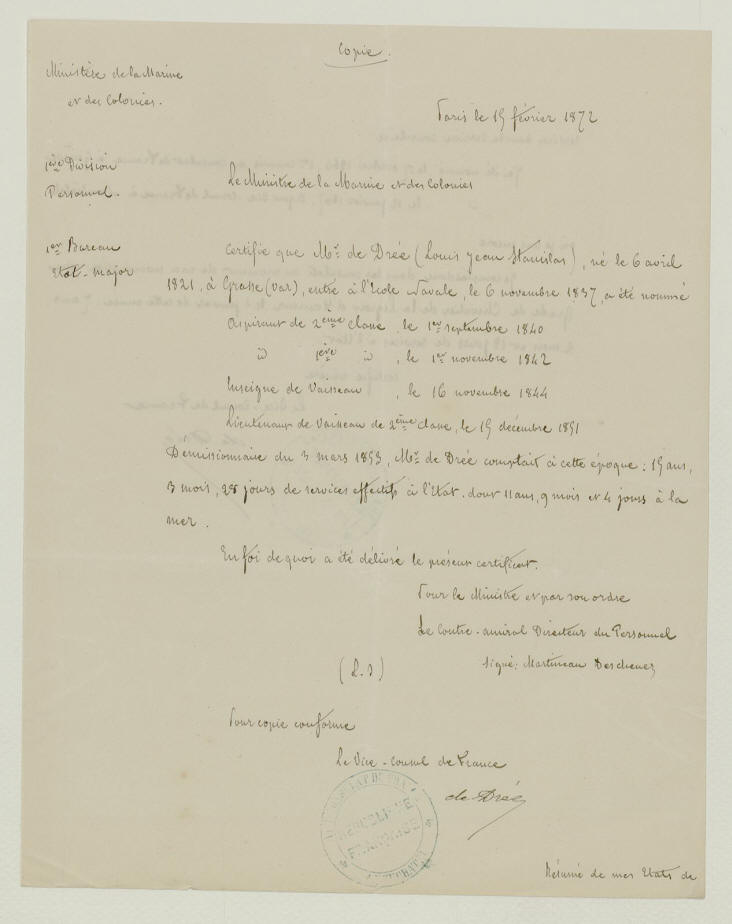 Copie.
Ministère de la Marine
et des Colonies.
Paris le 15 février 1872
1ère Division
Personnel.
Le Ministre de la Marine et des Colonies
1er Bureau
Etat-major
Certifie que Mr. de Drée (Louis Jean Stanislas), né le 6 avril
1821, à Grasse (Var), entré à l'Ecole Navale, le 6 novembre 1837, a été nommé
Aspirant de 2ème classe, le 1er septembre 1840
id 1ère id, le 1er novembre 1842
Enseigne de Vaisseau, le 16 novembre 1844
Lieutenant de Vaisseau de 2ème classe, le 15 décembre 1851
Démissionnaire du 3 mars 1853, Mr. de Drée comptait à cette époque: 15 ans,
3 mois, 28 jours de services effectifs à l'Etat. dont 11 ans, 9 mois et 4 jours à la
mer.
En foi de quoi a été délivré le présent certificat.
Pour le Ministre et par son ordre
Le Contre-amiral Directeur du Personnel
Signé: Martineau Deschenez
(L.S)
Pour copie conforme
Le Vice-Consul de France
de Drée
RÉPUBLIQUE
FRANÇAISE
Résumé de mes Etats de